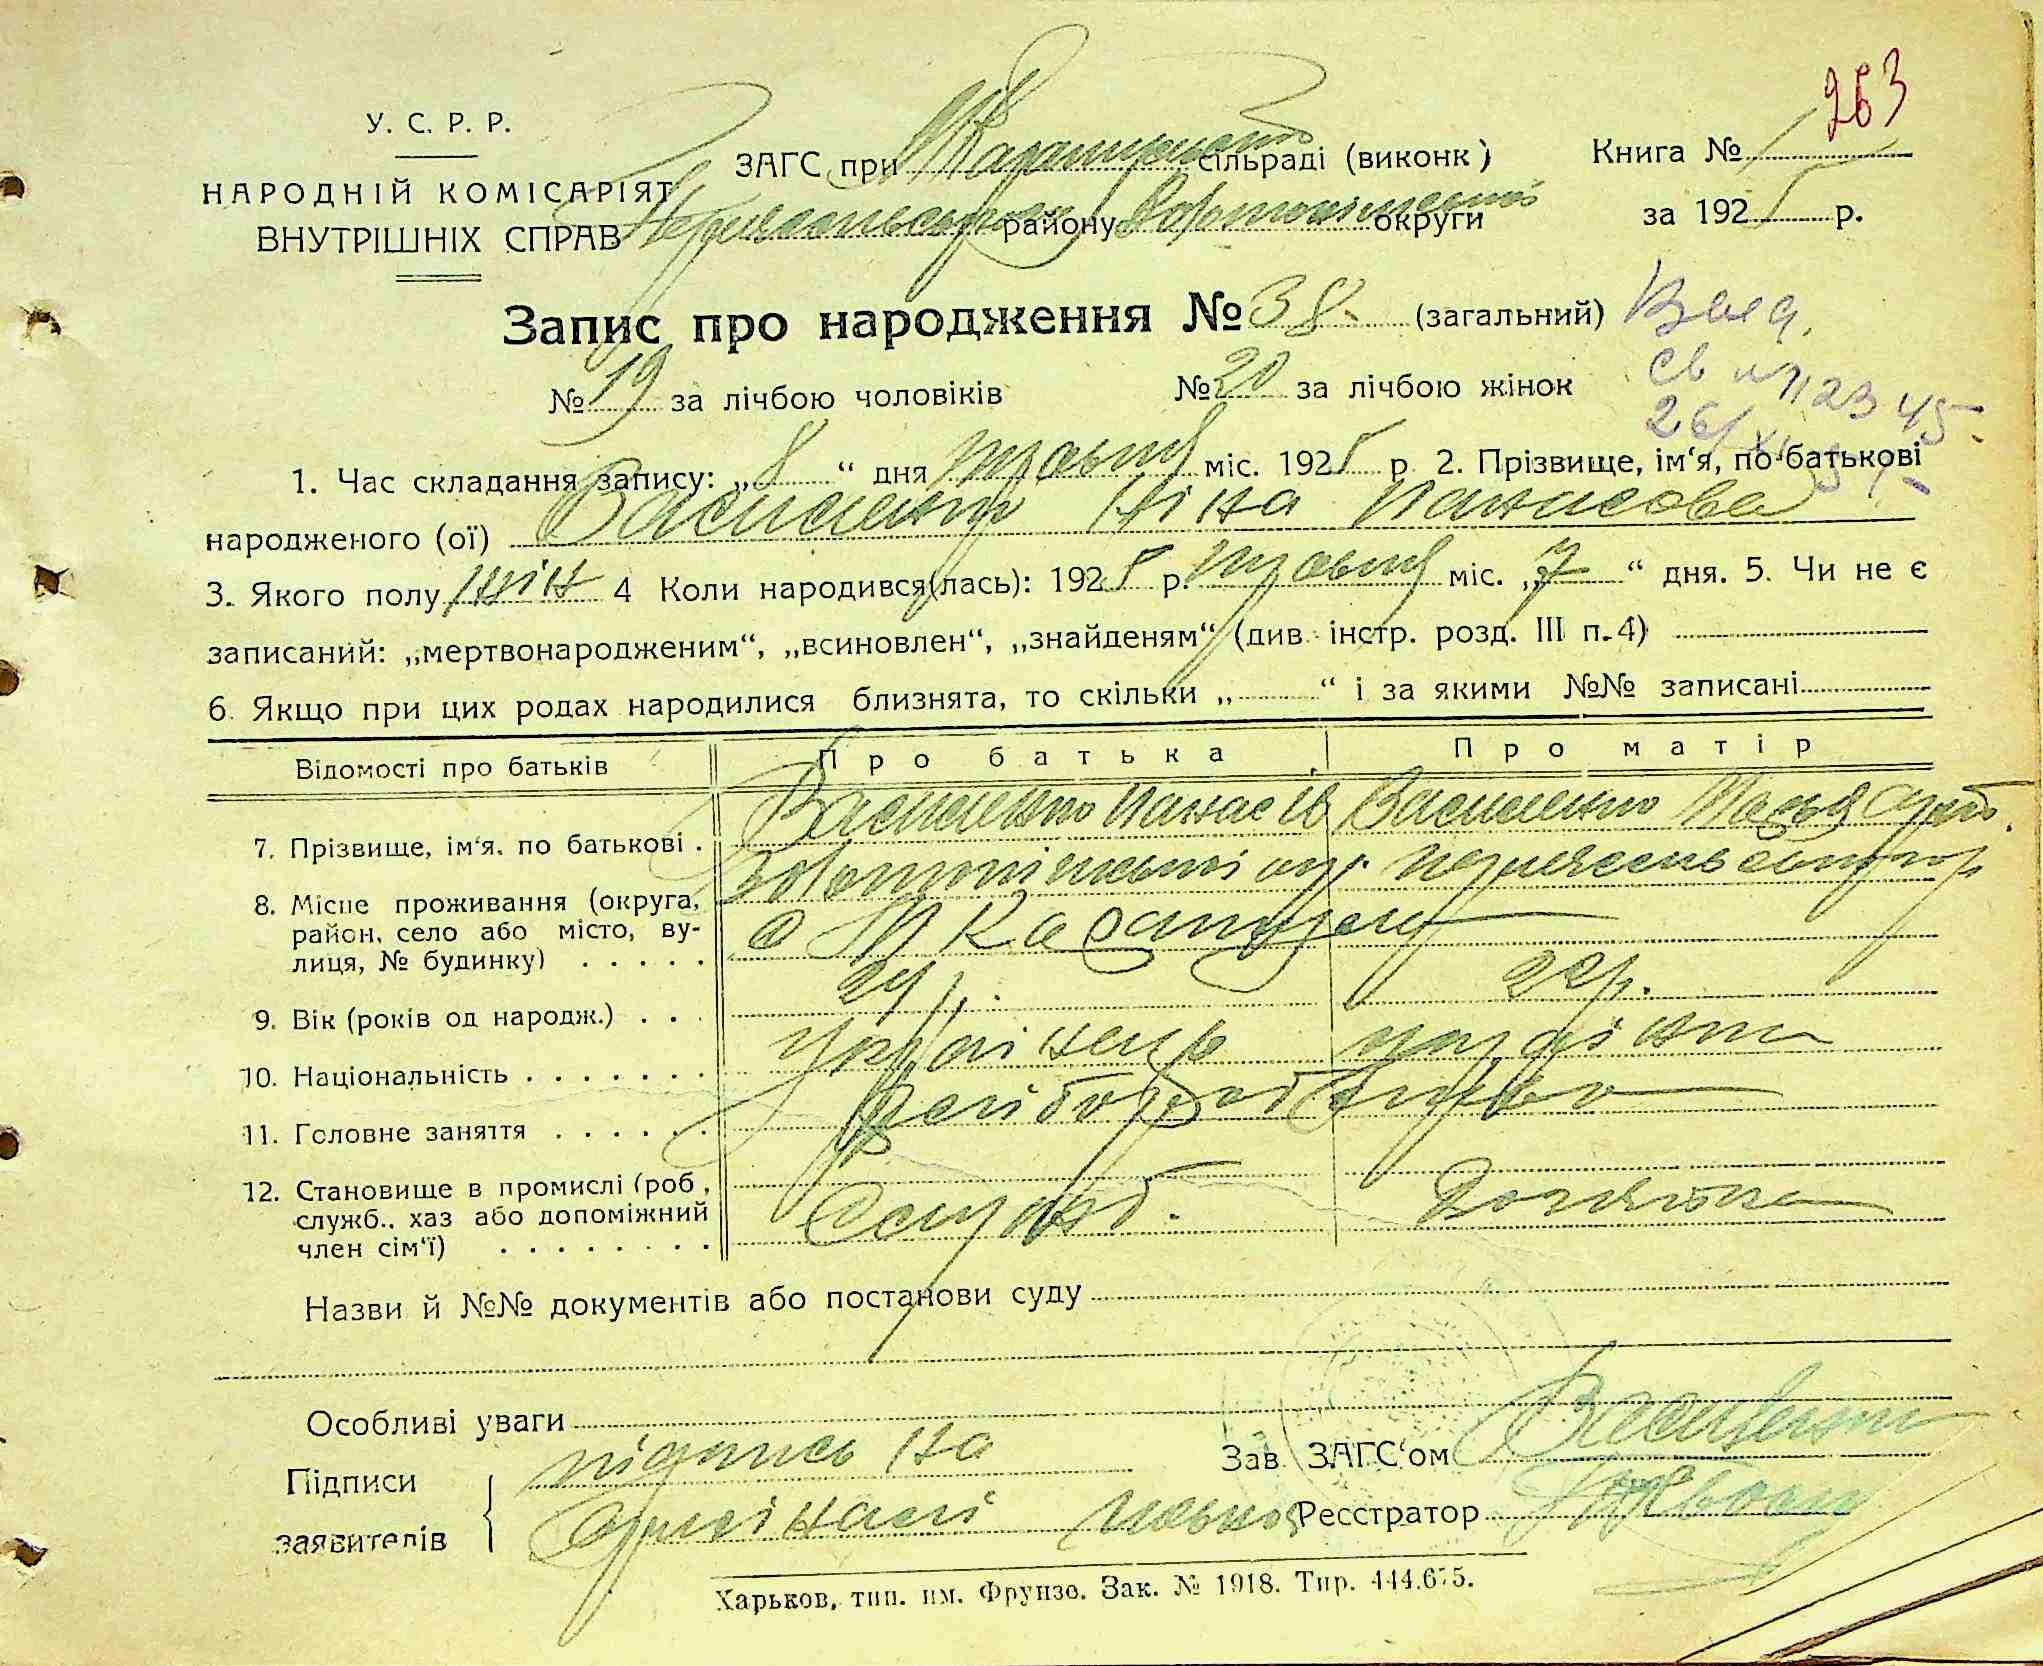 263
У. С. Р. Р.
НАРОДНІЙ КОМІСАРІЯТ
ВНУТРІШНІХ СПРАВ
ЗАГС при М Каратульской сільраді (виконк)
Переяславськ району Золотоніської округи
Книга № 1
за 1925 р.
Запис про народження № 38. (загальний)
№ 19 за лічбою чоловіків № 20 за лічбою жінок
Выд.
св
26/XI
1. Час складання запису: „8“ дня травня міс. 1925 р 2. Прізвище, ім‘я, по батькові
народженого (ої) Василенко Ніна Панасова
3. Якого полу жін 4 Коли народився(лась): 1925 р. травня міс. „7“ дня. 5. Чи не є
записаний: „мертвонародженим“, „всиновлен“, „знайденям“ (див. інстр. розд. III п. 4)
6. Якщо при цих родах народилися близнята, то скільки „ “ і за якими №№ записані
Відомості про батьків Про батька Про матір
7. Прізвище, ім‘я, по батькові . Василенко Панас Ів Василенко
8. Місце проживання (округа, район, село або місто, вулиця, № будинку) Золотоніської окр. Переяславського р
с М Каратулу
9. Вік (років од народж.) 24 р. 22 р.
10. Національність українець українка
11. Головне заняття хліборобство
12. Становище в промислі (роб, служб., хаз або допоміжний член сім‘ї)
Назви й №№ документів або постанови суду
Особливі уваги
Підписи заявителів підпись на
орігіналі
Зав ЗАГС‘ом Василенко
Реєстратор
Харьков, тип. им. Фрунзе. Зак. № 1918. Тир. 444.675.